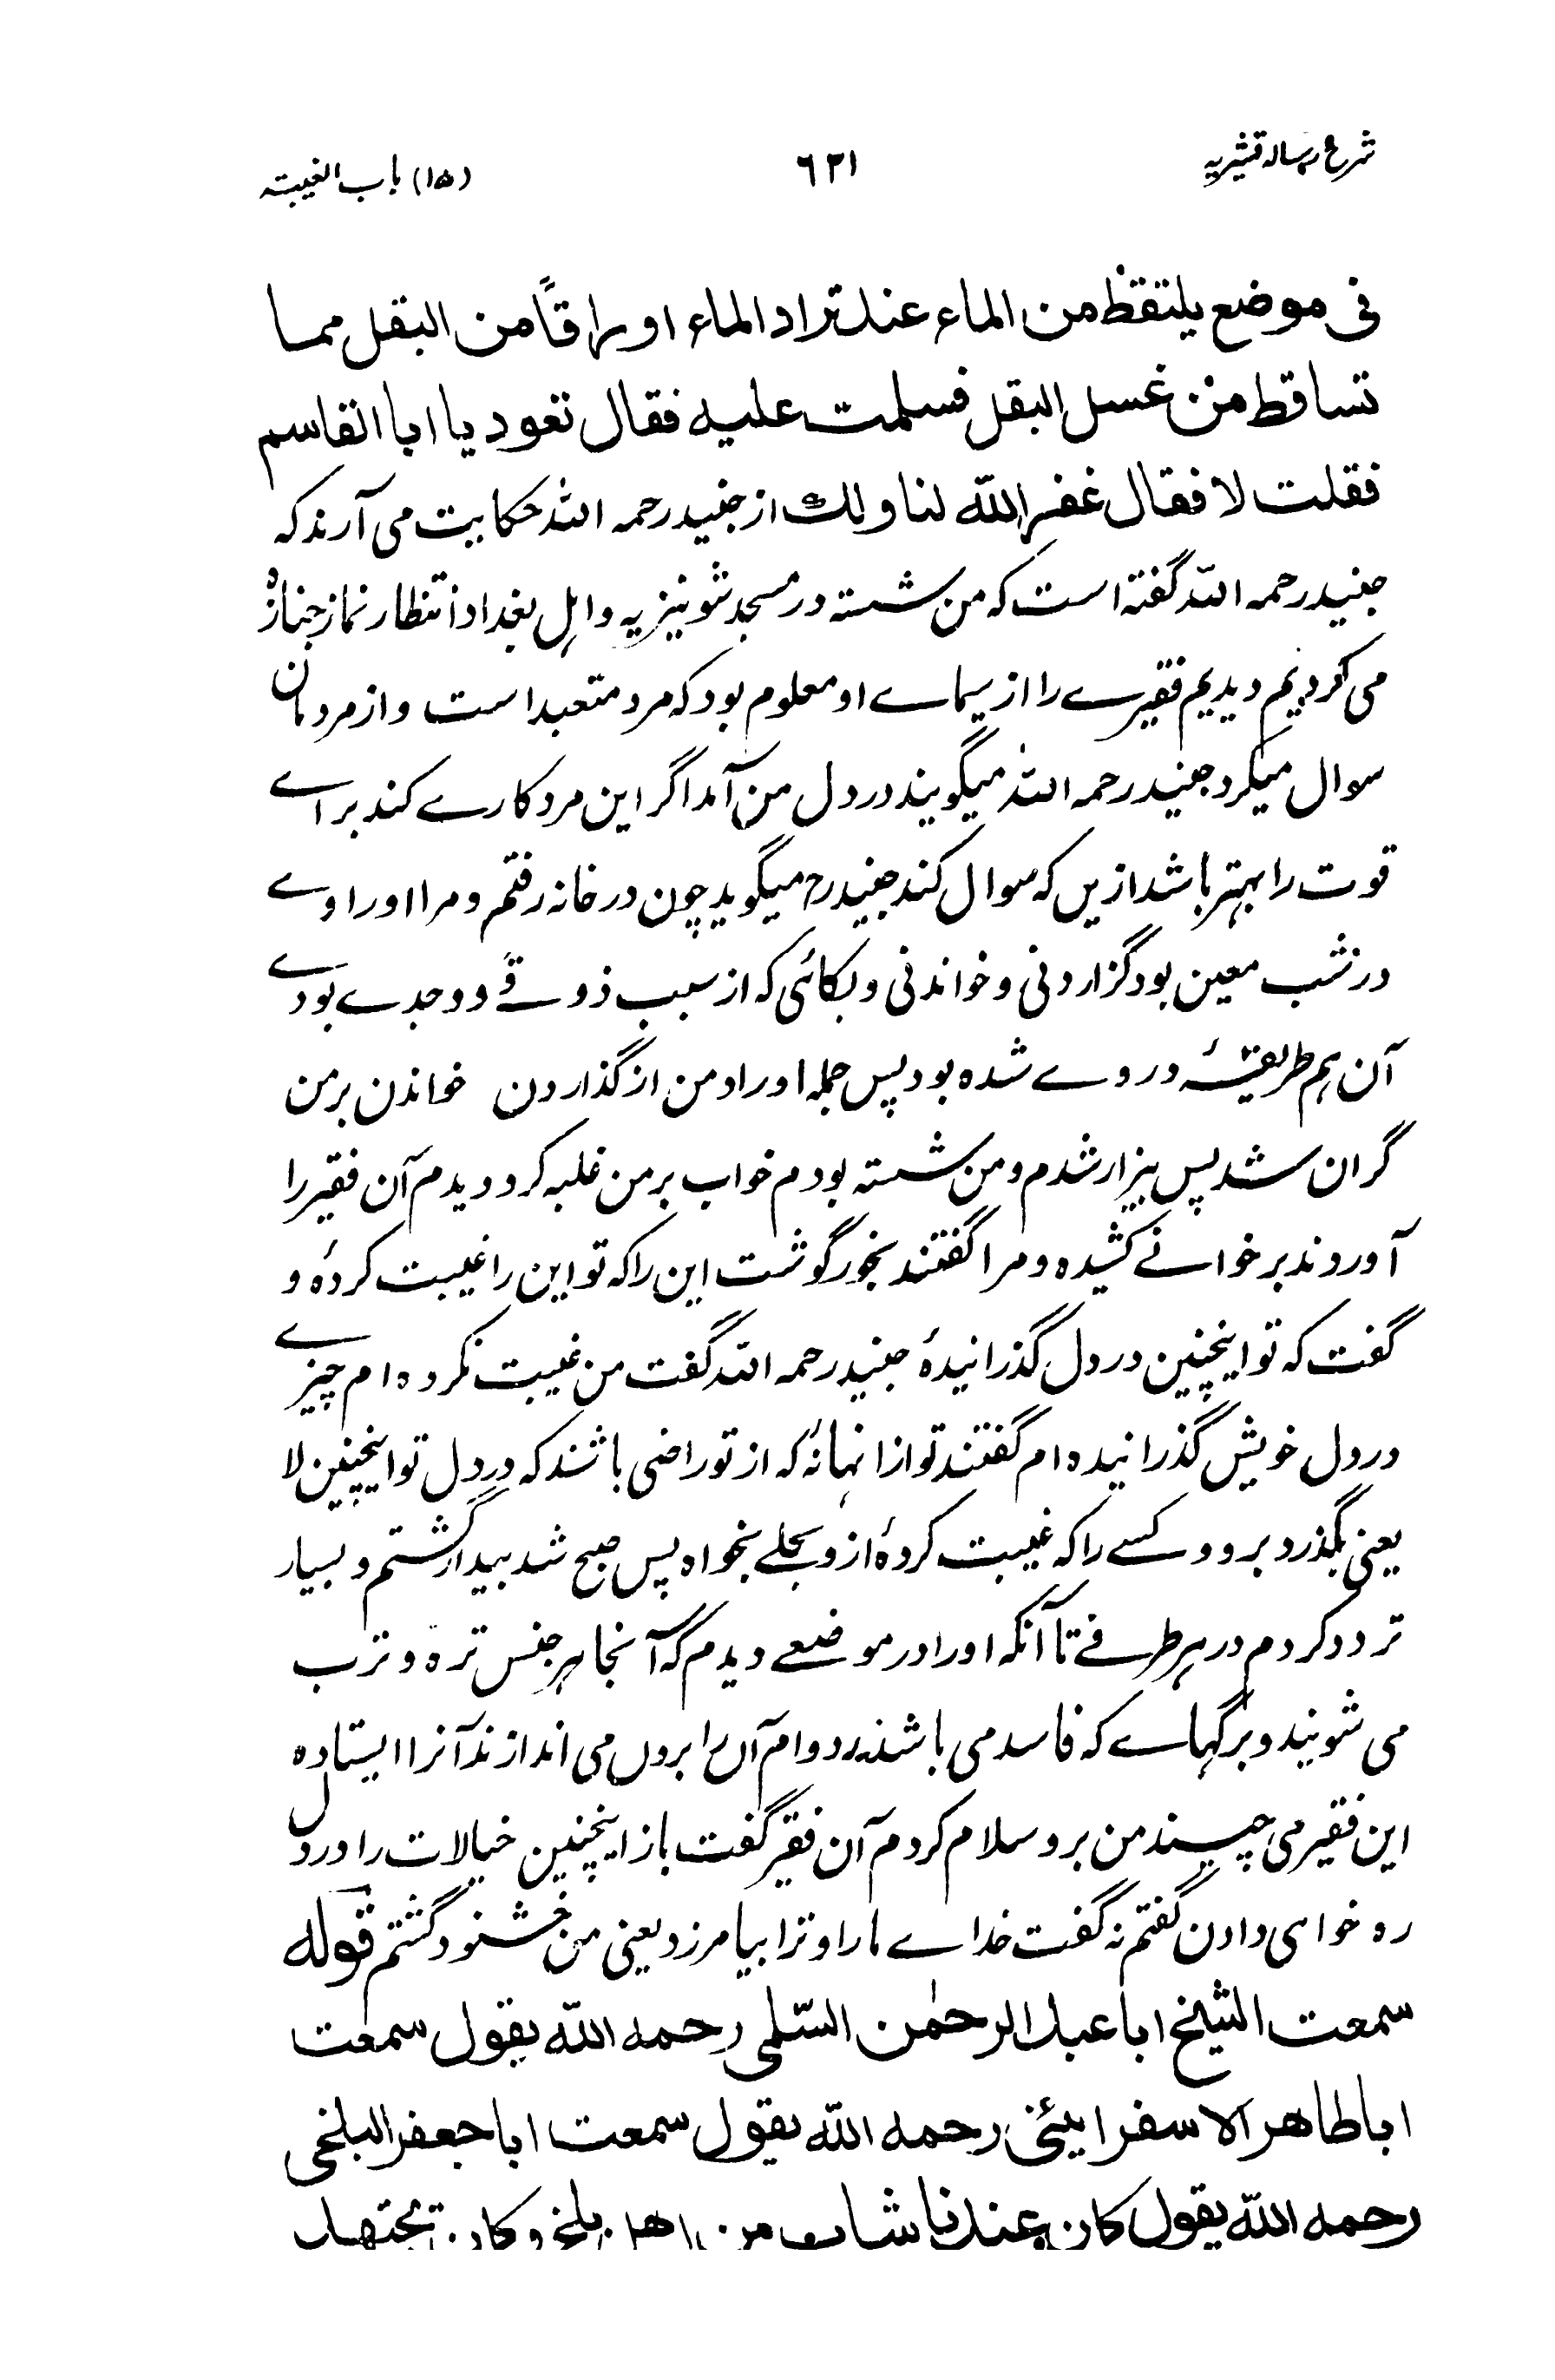 شرح رساله قشیریه ٦٢١ (١٥) باب الغیبته
فی موضع یلتقط من الماء عند تراد الماء اوراقًا من البقل مما
تساقط من غسل البقل فسلمت علیه فقال تعود یا ابا القاسم
فقلت لا فقال غفر الله لنا ولك از جنید رحمه الله حکایت می آرند که
جنید رحمه الله گفته است که من شسته در مسجد شونیزیه و اہل بغداد انتظار نماز جنازهٔ
می کردیم دیدیم فقیرے را از سیماے او معلوم بود که مرد متعبد است و از مردمان
سوال میکرد جنید رحمه الله میگویند در دل من آمد اگر این مرد کارے کند براے
قوت را بہتر باشد ازیں که سوال کند جنید رح میگوید چون در خانه رفتم و مرا اورا دے
در شب معین بود گزاردنی و خواندنی و بکائی که از سبب ذوقے و وجدے بودے
آن ہم طریقۂ در وے شده بود پس جمله اوراد من از گذاردن خواندن بر من
گران شد پس بیزار شدم و من شسته بودم خواب بر من غلبه کرد دیدم آن فقیر را
آوردند بر خوانے کشیده و مرا گفتند بخور گوشت این را که تو این را غیبت کردهٔ و
گفت که تو اینچنین در دل گذرانیدهٔ جنید رحمه الله گفت من غیبت نکرده ام چیزے
در دل خویش گذرانیده ام گفتند تو ازانها نۂ که از تو راضی باشند که در دل تو اینچنین لا
یعنی بگذرد برو و کسے را که غیبت کردهٔ ازو بحلے بخواه پس صبح شد بیدار گشتم و بسیار
تردد کردم در ہر طرفے تا آنکه اورا در موضعے دیدم که آنجا ہر جنس تره و ترب
می شویند و برگہاے که فاسد می باشند ردوام آں را بروں می اندازند آنرا ایستاده
این فقیر می چیند من برو سلام کردم آن فقیر گفت باز اینچنین خیالات را در دل
ره خواهی دادن گفتم نه گفت خداے مارا و ترا بیامرزد یعنی من خشنود گشتم قوله
سمعت الشیخ ابا عبد الرحمٰن السّلمی رحمه الله یقول سمعت
ابا طاهر الاسفرایئنی رحمه الله یقول سمعت ابا جعفر البلخی
رحمه الله یقول کان عندنا شاب من اهل بلخ وکان یجتهد